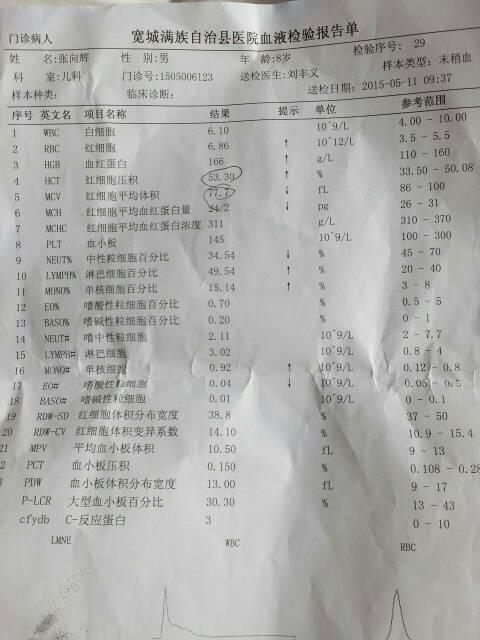 宽城满族自治县医院血液检验报告单
门诊病人 检验序号: 29
姓 名:张向辉 性 别:男 年 龄:8岁 样本类型: 末梢血
科 室:儿科 门诊号:1505006123 送检医生:刘丰义
样本种类: 临床诊断: 送检日期: 2015-05-11 09:37
序号 英文名 项目名称 结果 提示 单位 参考范围
1 WBC 白细胞 6.10 10^9/L 4.00 - 10.00
2 RBC 红细胞 6.86 ↑ 10^12/L 3.5 - 5.5
3 HGB 血红蛋白 166 ↑ g/L 110 - 160
4 HCT 红细胞压积 53.30 ↑ % 33.50 - 50.08
5 MCV 红细胞平均体积 77.7 ↓ fL 86 - 100
6 MCH 红细胞平均血红蛋白量 24.2 ↓ pg 26 - 31
7 MCHC 红细胞平均血红蛋白浓度 311 g/L 310 - 370
8 PLT 血小板 145 10^9/L 100 - 300
9 NEUT% 中性粒细胞百分比 34.54 ↓ % 45 - 70
10 LYMPH% 淋巴细胞百分比 49.54 ↑ % 20 - 40
11 MONO% 单核细胞百分比 15.14 ↑ % 3 - 8
12 EO% 嗜酸性粒细胞百分比 0.70 % 0.5 - 5
13 BASO% 嗜碱性粒细胞百分比 0.20 % 0 - 1
14 NEUT# 嗜中性粒细胞 2.11 10^9/L 2 - 7.7
15 LYMPH# 淋巴细胞 3.02 10^9/L 0.8 - 4
16 MONO# 单核细胞 0.92 ↑ 10^9/L 0.12 - 0.8
17 EO# 嗜酸性粒细胞 0.04 ↓ 10^9/L 0.05 - 0.5
18 BASO# 嗜碱性粒细胞 0.01 10^9/L 0 - 0.1
19 RDW-SD 红细胞体积分布宽度 38.8 % 37 - 50
20 RDW-CV 红细胞体积变异系数 14.10 % 10.9 - 15.4
21 MPV 平均血小板体积 10.50 fL 9 - 13
2 PCT 血小板压积 0.150 % 0.108 - 0.28
3 PDW 血小板体积分布宽度 13.00 fL 9 - 17
P-LCR 大型血小板百分比 30.30 % 13 - 43
cfydb C-反应蛋白 3 0 - 10
LMNE WBC RBC